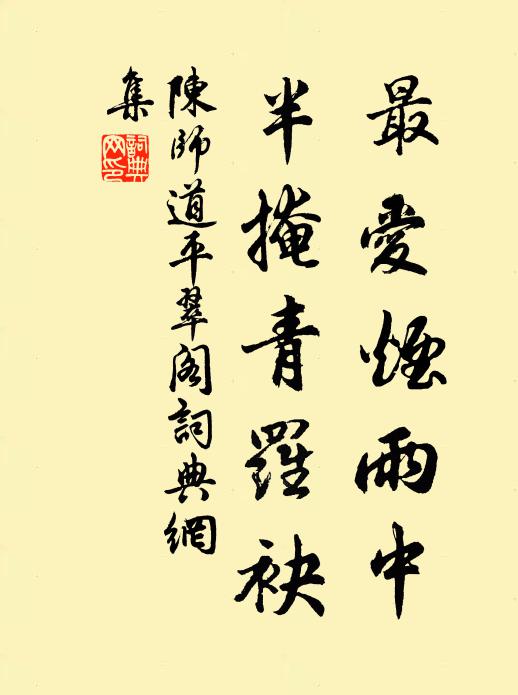 最愛煙雨中
半掩青羅袂
陳師道平翠閣詞典網
集
詞典網印